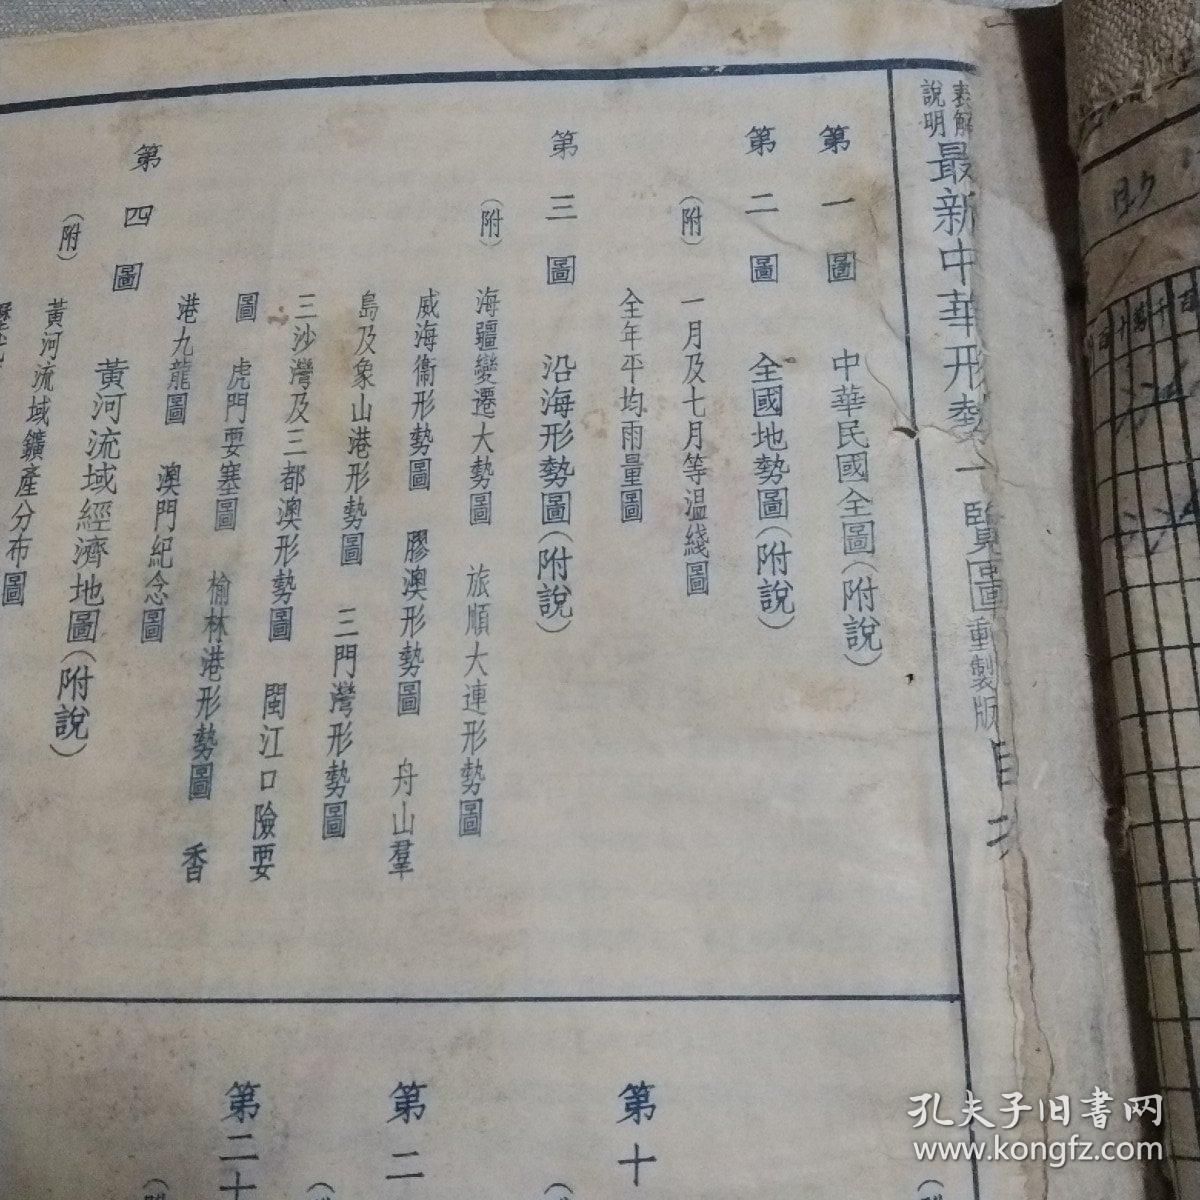 表解
說明
最新中華形勢一覽圖重製版目次
第一圖 中華民國全圖(附說)
第二圖 全國地勢圖(附說)
(附) 一月及七月等温綫圖
全年平均雨量圖
第三圖 沿海形勢圖(附說)
(附) 海疆變遷大勢圖 旅順大連形勢圖
威海衞形勢圖 膠澳形勢圖 舟山羣
島及象山港形勢圖 三門灣形勢圖
三沙灣及三都澳形勢圖 閩江口險要
圖 虎門要塞圖 榆林港形勢圖 香
港九龍圖 澳門紀念圖
第四圖 黃河流域經濟地圖(附說)
(附) 黃河流域鑛產分布圖
第十
第二
第二十
孔夫子旧书网
www.kongfz.com